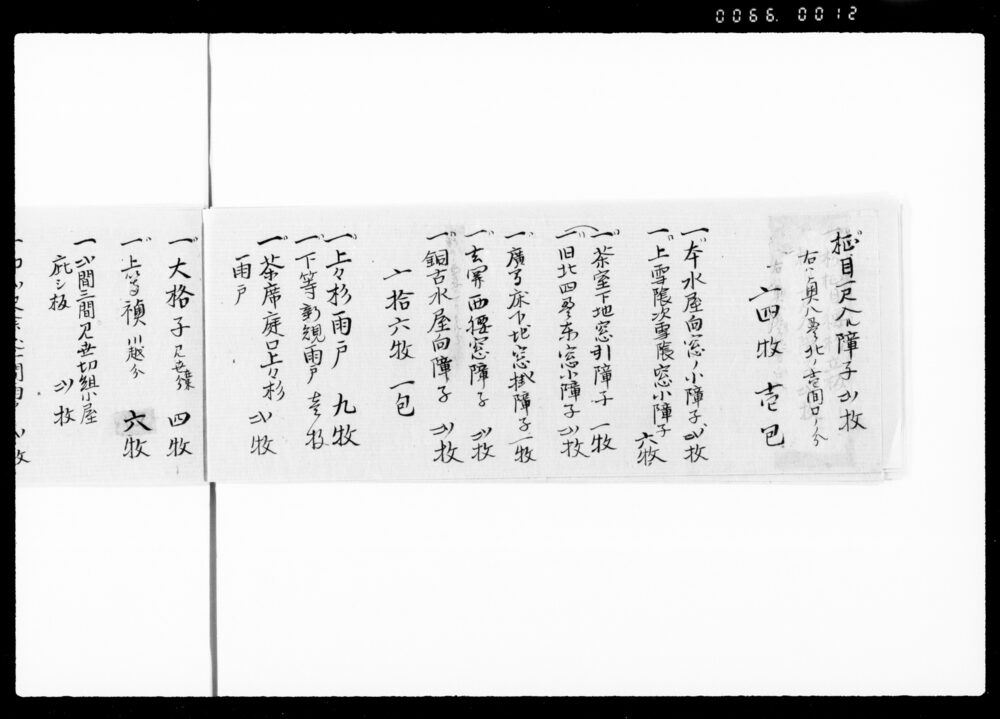 0066. 0012
柾目一尺入障子 弐枚
右ハ奥八畳北ノ壱間口ノ分
〆四枚 壱包
一本水屋向窓ノ小障子 弐枚
一上雪隠次雪隠窓小障子 六枚
一茶室下地窓引障子 一枚
一旧北四畳東窓小障子 弐枚
一廣間床下地窓掛障子 一枚
一玄関西腰窓障子 弐枚
一銅古水屋向障子 弐枚
〆拾六枚 一包
一上々杉雨戸 九枚
一下等新規雨戸 壱枚
一茶席庭口上々杉 弐枚
雨戸
一大格子 四枚
一上等 川越分 六枚
一弐間三間 切組小屋
庇シ板 弐枚